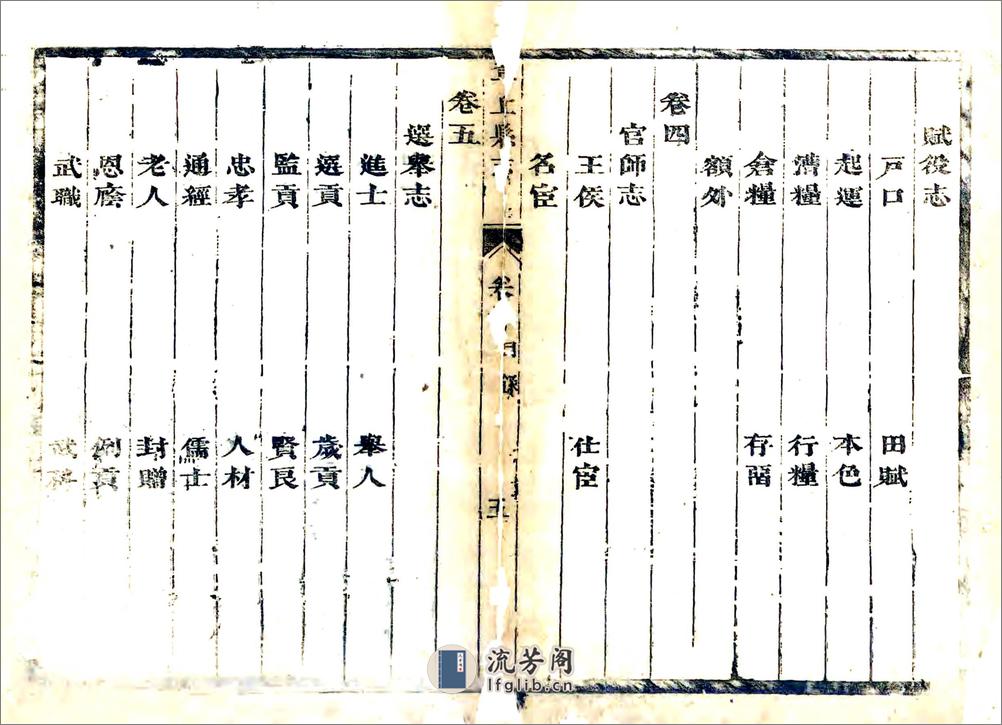 賦役志
戸口 田賦
起運 本色
漕糧 行糧
倉糧 存留
額外
卷四
官師志
王侯 仕宦
名宦
上縣志
卷 目錄
五
卷五
選舉志
進士 舉人
選貢 歲貢
監貢 賢良
忠孝 人材
通經 儒士
老人 封贈
恩廕 例貢
武職
流芳阁
lfglib.cn